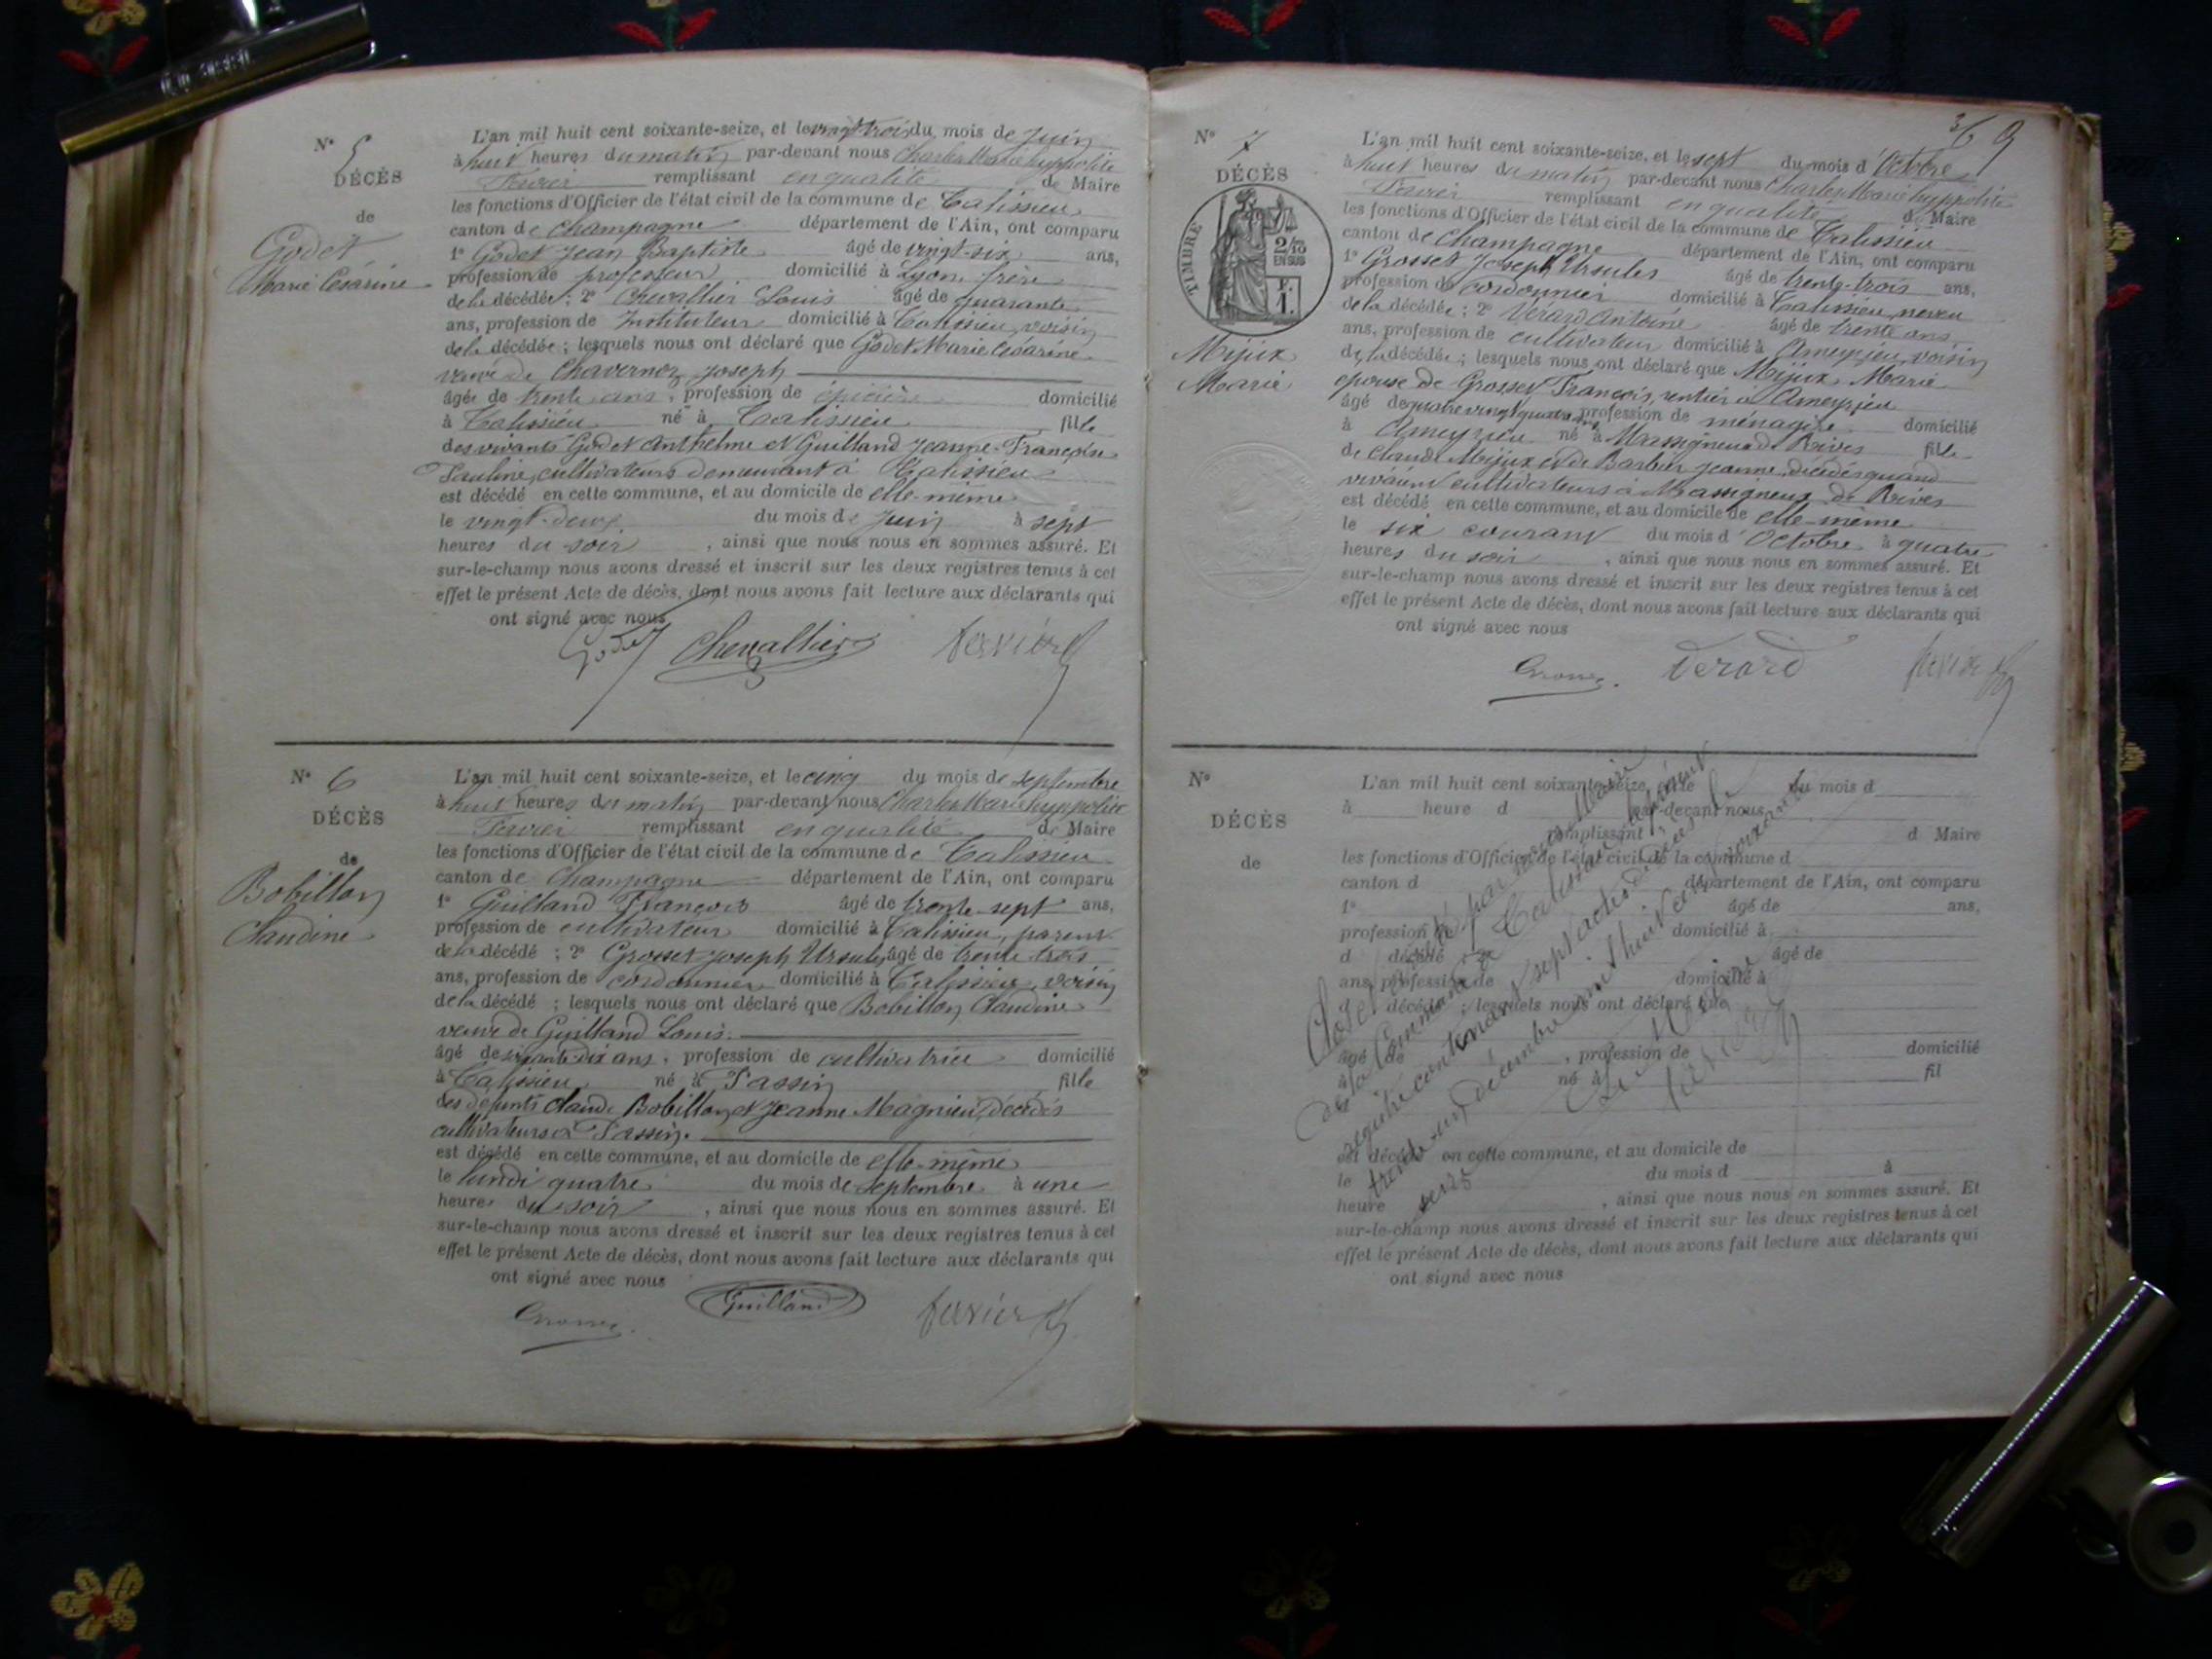 N° 5
DÉCÈS
de
Godet
Marie Césarine
L'an mil huit cent soixante-seize, et le vingt trois du mois de Juin
à huit heures du matin par-devant nous Charles Marie hyppolite
remplissant en qualité de Maire
les fonctions d'Officier de l'état civil de la commune de Talissieu
canton de Champagne département de l'Ain, ont comparu
1° Godet Jean Baptiste âgé de vingt-six ans,
profession de professeur domicilié à Lyon, frère
de la décédée ; 2° Chevallier Louis âgé de quarante
ans, profession de Instituteur domicilié à Talissieu, voisin
de la décédée ; lesquels nous ont déclaré que Godet Marie Césarine
veuve de Chavernoz Joseph
âgée de trente ans, profession de épicière domicilié
à Talissieu né à Talissieu fille
des vivants Godet Anthelme et Guilland Jeanne-Françoise
Pauline, cultivateurs demeurant à Talissieu
est décédé en cette commune, et au domicile de elle-même
le vingt-deux du mois de Juin à sept
heures du soir , ainsi que nous nous en sommes assuré. Et
sur-le-champ nous avons dressé et inscrit sur les deux registres tenus à cet
effet le présent Acte de décès, dont nous avons fait lecture aux déclarants qui
ont signé avec nous
Godet Chevallier
N° 6
DÉCÈS
de
Bobillon
Claudine
L'an mil huit cent soixante-seize, et le cinq du mois de septembre
à huit heures du matin par-devant nous Charles Marie hyppolite
remplissant en qualité de Maire
les fonctions d'Officier de l'état civil de la commune de Talissieu
canton de Champagne département de l'Ain, ont comparu
1° Guilland François âgé de trente-sept ans,
profession de cultivateur domicilié à Talissieu, parent
de la décédé ; 2° Grosset Joseph Ursules âgé de trente trois
ans, profession de cordonnier domicilié à Talissieu, voisin
de la décédé ; lesquels nous ont déclaré que Bobillon Claudine
veuve de Guilland Louis.
âgé de soixante dix ans, profession de cultivatrice domicilié
à Talissieu né à Passin fille
des défunts Claude Bobillon et Jeanne Magnieu, décédés
cultivateurs à Passin.
est décédé en cette commune, et au domicile de elle-même
le lundi quatre du mois de septembre à une
heure du soir , ainsi que nous nous en sommes assuré. Et
sur-le-champ nous avons dressé et inscrit sur les deux registres tenus à cet
effet le présent Acte de décès, dont nous avons fait lecture aux déclarants qui
ont signé avec nous
Guilland
369
N° 7
DÉCÈS
TIMBRE
2/10
EN SUS
F.
1.
Mijux
Marie
L'an mil huit cent soixante-seize, et le sept du mois d'Octobre
à huit heures du matin par-devant nous Charles Marie hyppolite
remplissant en qualité de Maire
les fonctions d'Officier de l'état civil de la commune de Talissieu
canton de Champagne département de l'Ain, ont comparu
1° Grosset Joseph Ursules âgé de trente-trois ans,
profession de cordonnier domicilié à Talissieu, neveu
de la décédée ; 2° Vérard Antoine âgé de trente ans,
ans, profession de cultivateur domicilié à Ameyzieu, voisin
de la décédée ; lesquels nous ont déclaré que Mijux Marie
épouse de Grosset François, rentier à Ameyzieu
âgé de quatre vingt quatre ans profession de ménagère domicilié
à Ameyzieu né à Massignieu de Rives fille
de Claude Mijux et de Barbier Jeanne, décédés quand
vivaient cultivateurs à Massignieu de Rives
est décédé en cette commune, et au domicile de elle-même
le six courant du mois d'Octobre à quatre
heures du soir , ainsi que nous nous en sommes assuré. Et
sur-le-champ nous avons dressé et inscrit sur les deux registres tenus à cet
effet le présent Acte de décès, dont nous avons fait lecture aux déclarants qui
ont signé avec nous
Verard
N°
DÉCÈS
de
L'an mil huit cent soixante-seize, et le du mois d
à heure d par-devant nous
remplissant d Maire
les fonctions d'Officier de l'état civil de la commune d
canton d département de l'Ain, ont comparu
1° âgé de ans,
profession d domicilié à
d décédé ; 2° âgé de
ans, profession de domicilié à
d décédé ; lesquels nous ont déclaré que
âgé de , profession de domicilié
à né à fil
est décédé en cette commune, et au domicile de
le du mois d à
heure , ainsi que nous nous en sommes assuré. Et
sur-le-champ nous avons dressé et inscrit sur les deux registres tenus à cet
effet le présent Acte de décès, dont nous avons fait lecture aux déclarants qui
ont signé avec nous
Clos et arrêté par nous Maire
de la Commune de Talissieu le présent
registre contenant sept actes de décès le
trente-un décembre mil huit cent soixante
seize
Le Maire